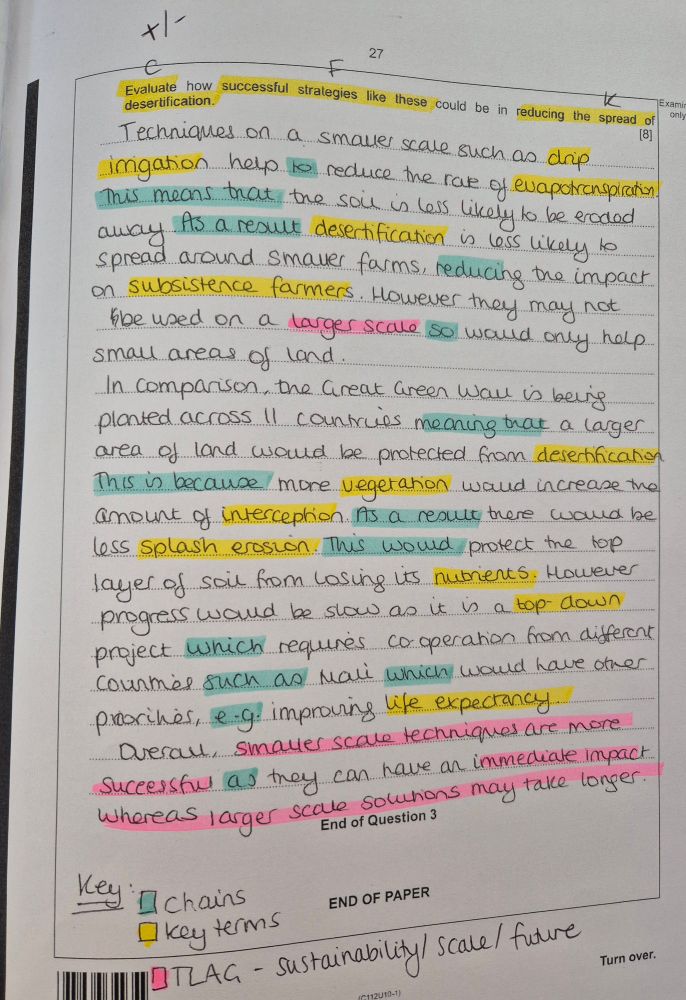 x/-
27
C F K
Evaluate how successful strategies like these could be in reducing the spread of
desertification.
[8]
Examin
only
Techniques on a smaller scale such as drip
irrigation help to reduce the rate of evapotranspiration.
This means that the soil is less likely to be eroded
away. As a result desertification is less likely to
spread around smaller farms, reducing the impact
on subsistence farmers. However they may not
be used on a larger scale so would only help
small areas of land.
In comparison, the Great Green Wall is being
planted across 11 countries meaning that a larger
area of land would be protected from desertification
This is because more vegetation would increase the
amount of interception. As a result there would be
less splash erosion. This would protect the top
layer of soil from losing its nutrients. However
progress would be slow as it is a top-down
project which requires co-operation from different
countries such as Mali which would have other
priorities, e.g. improving life expectancy
Overall, smaller scale techniques are more
successful as they can have an immediate impact
whereas larger scale solutions may take longer.
End of Question 3
Key:
chains
END OF PAPER
key terms
TLAG - sustainability/scale/future
Turn over.
(C112U10-1)